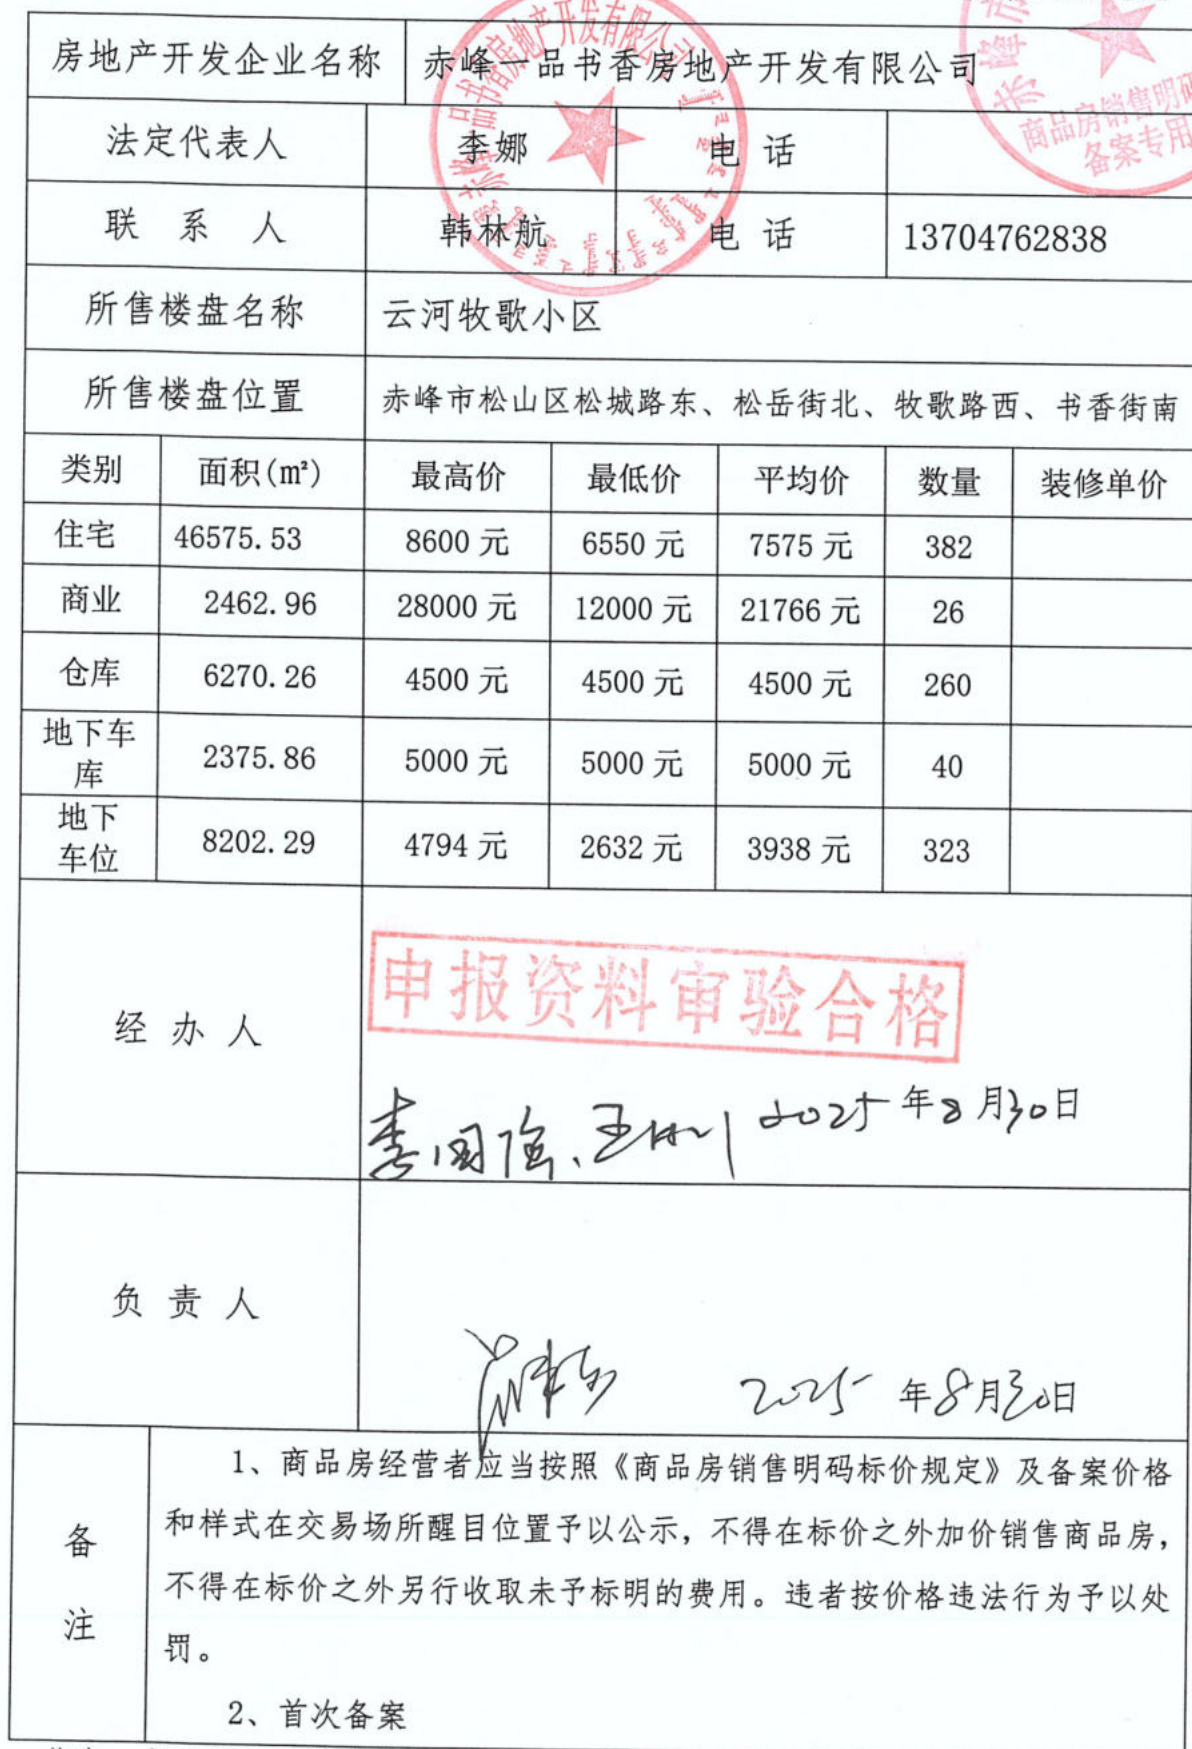 房地产开发企业名称 赤峰一品书香房地产开发有限公司
法定代表人 李娜 电话
联系人 韩林航 电话 13704762838
所售楼盘名称 云河牧歌小区
所售楼盘位置 赤峰市松山区松城路东、松岳街北、牧歌路西、书香街南
类别 面积(㎡) 最高价 最低价 平均价 数量 装修单价
住宅 46575.53 8600元 6550元 7575元 382
商业 2462.96 28000元 12000元 21766元 26
仓库 6270.26 4500元 4500元 4500元 260
地下车
库 2375.86 5000元 5000元 5000元 40
地下
车位 8202.29 4794元 2632元 3938元 323
商品房销售明码
备案专用
申报资料审验合格
经办人
2025年8月30日
负责人
2025年8月30日
备
注
1、商品房经营者应当按照《商品房销售明码标价规定》及备案价格
和样式在交易场所醒目位置予以公示，不得在标价之外加价销售商品房，
不得在标价之外另行收取未予标明的费用。违者按价格违法行为予以处
罚。
2、首次备案